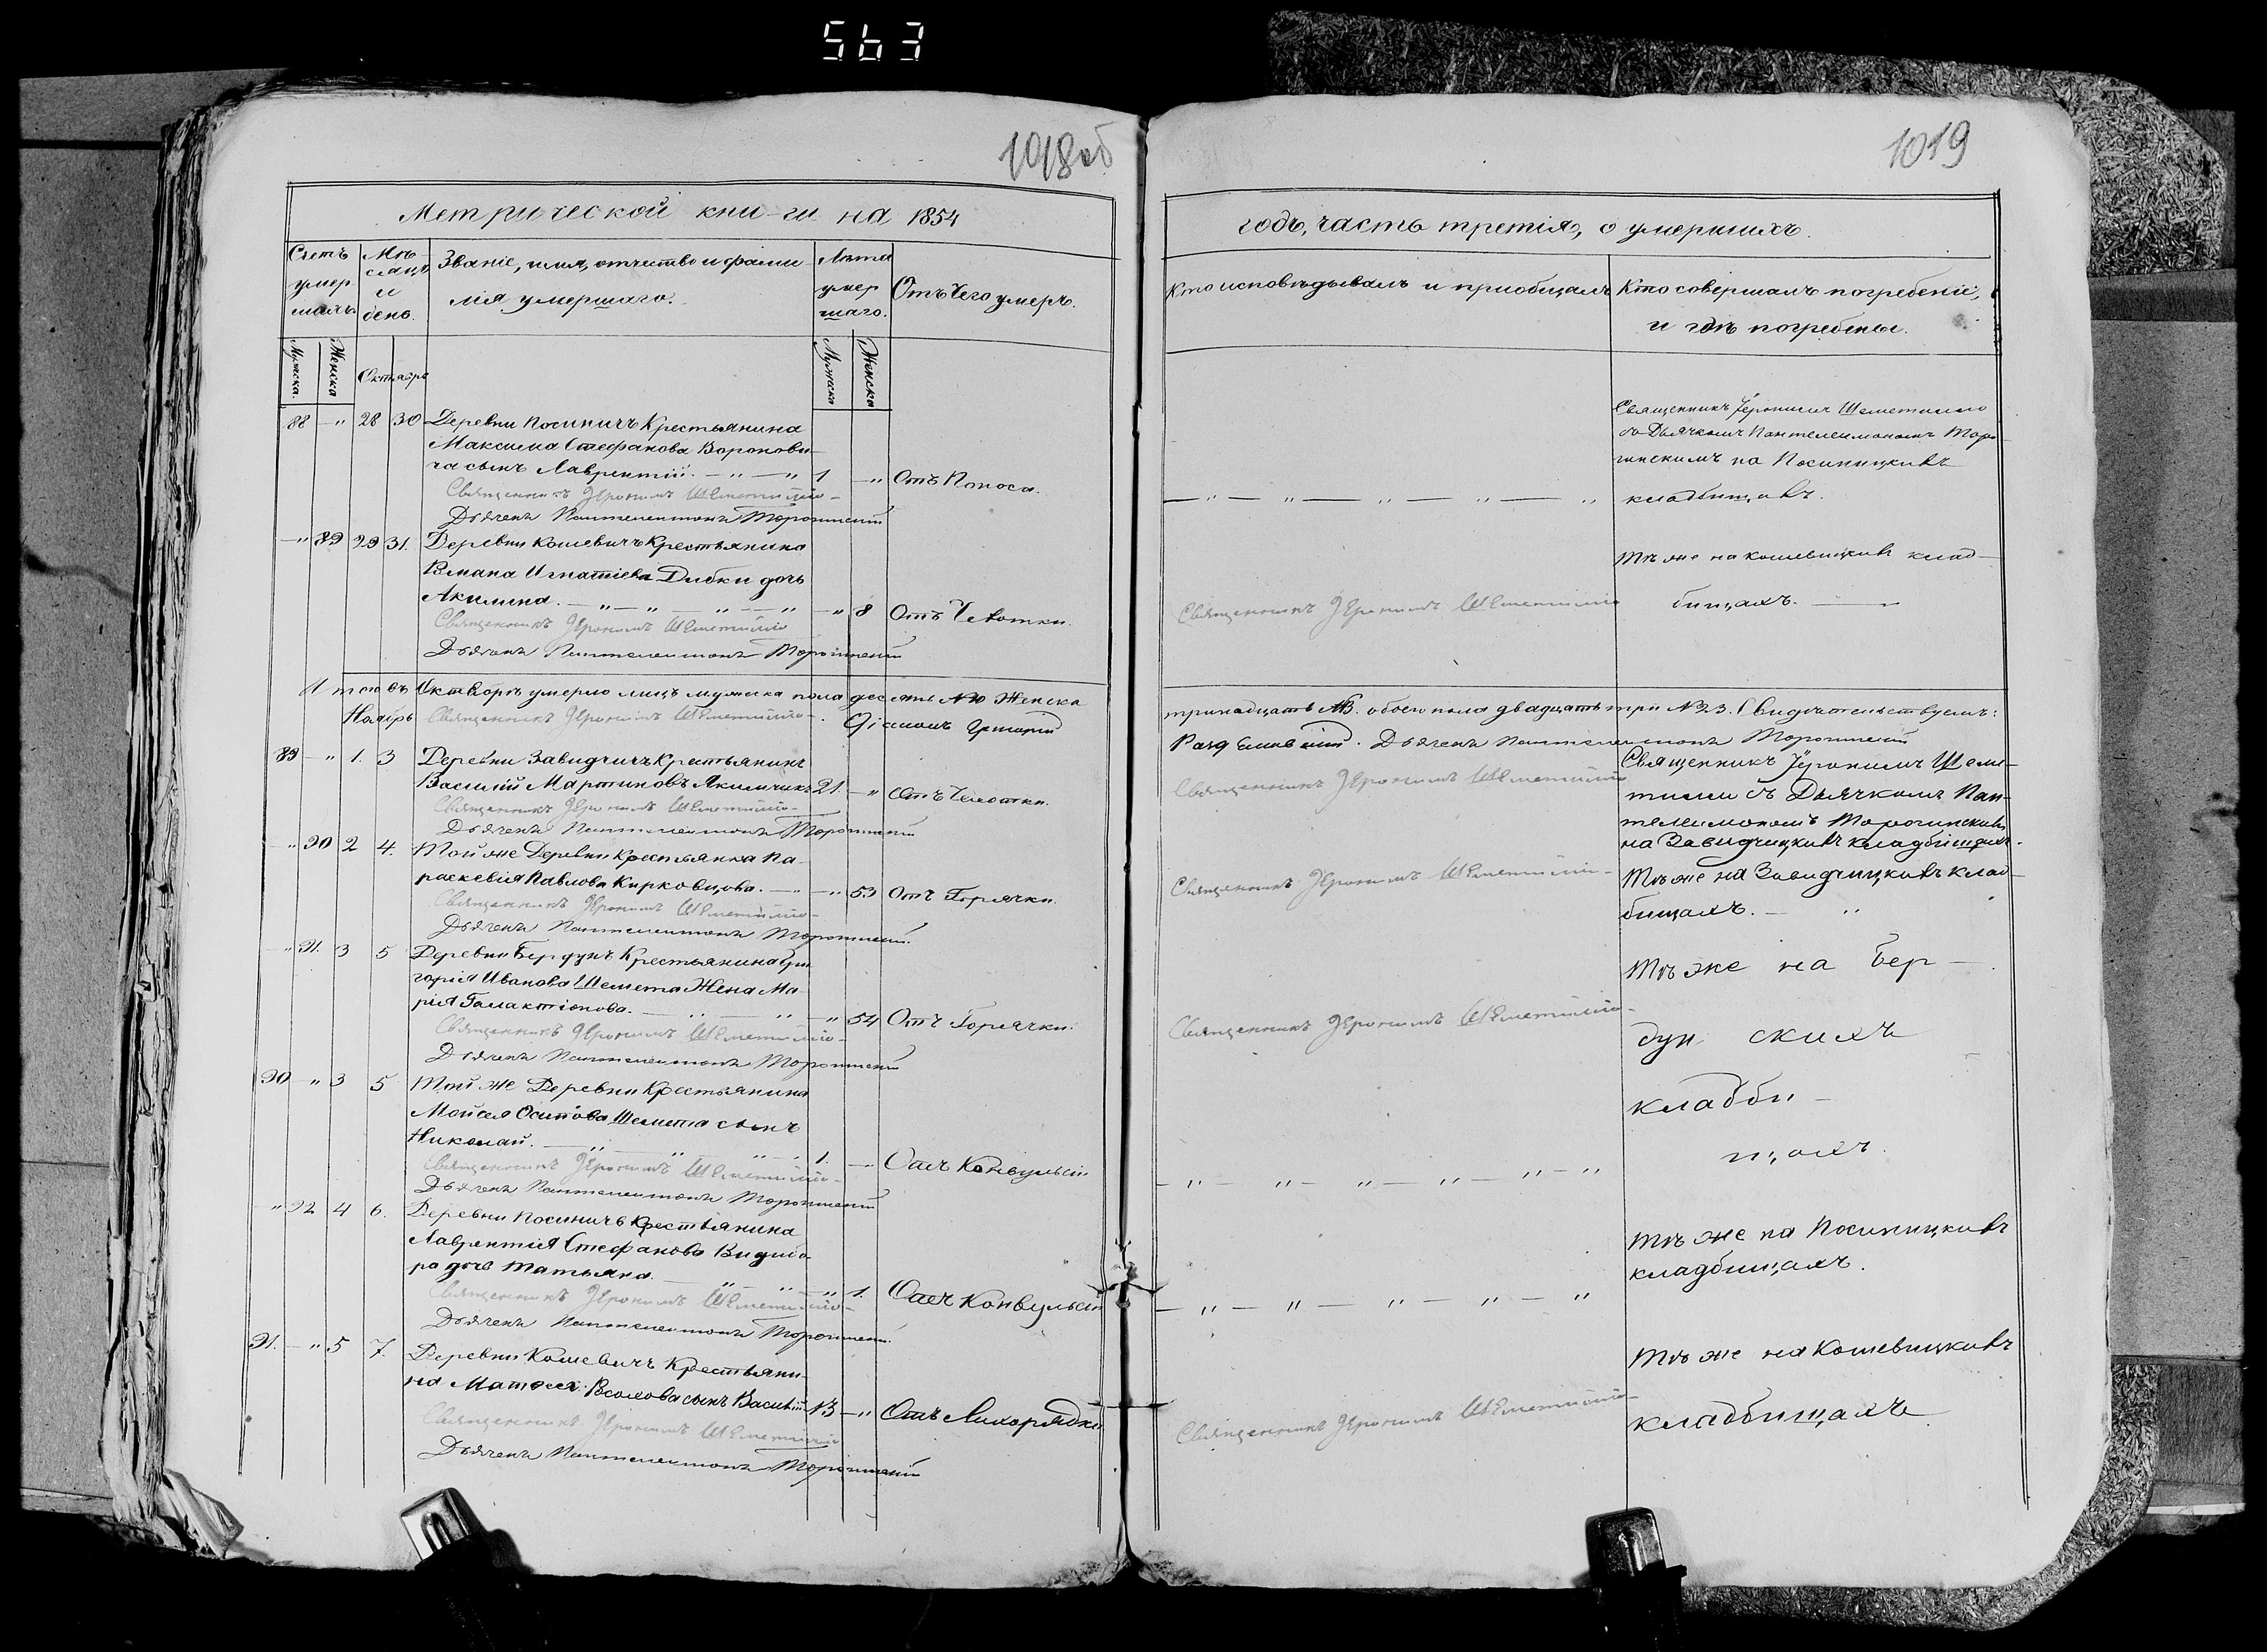 563
1018об
Метрической кни-ги на 1854
Счетъ умер шихъ
Мѣ сяцъ и день.
Званіе, имя, отчество и фами-
лія умершаго.
Лѣта умер шаго.
Отъ Чего умеръ.
Мужска
Женска
Октябрь
Мужска
Женска
88 — " 28 30 Деревни Посиничъ Крестьянина
Максима Стефанова Воронови-
ча сынъ Лаврентій. — " — " 1 — " Отъ Поноса.
Священникъ Іеронимъ
Дьячекъ Пантелеимонъ
— " 89 29 31. Деревни Кошевичъ Крестьянина
Романа Игнатіева Дибки дочь
Акилина. — " — " — " — " — " 8 Отъ Чахотки.
Священникъ Іеронимъ
Дьячекъ Пантелеимонъ
Итого въ Октябрѣ умерло лицъ мужеска пола десять №10 Женска
Ноябрь Священникъ Іеронимъ
Діаконъ Григорій
89 — " 1. 3 Деревни Завидчичъ Крестьянинъ
Василій Мартиновъ Якимчикъ 21. — " Отъ Чахотки.
Священникъ Іеронимъ
Дьячекъ Пантелеимонъ
— " 90 2 4. Той же Деревни Крестьянка Па-
раскевія Павлова Кирковцова. — " — " 53 Отъ Горячки.
Священникъ Іеронимъ
Дьячекъ Пантелеимонъ
— " 91. 3 5 Деревни Бердунъ Крестьянина Гри-
горія Иванова Шемета Жена Ма-
рія Галактіонова. — " — " — " 54 Отъ Горячки.
Священникъ Іеронимъ
Дьячекъ Пантелеимонъ
90 — " 3 5 Той же Деревни Крестьянина
Мойсея Осипова Шемета сынъ
Николай. — " — " — " — 1. — " Отъ Конвульсій
Священникъ Іеронимъ
Дьячекъ Пантелеимонъ
" 92 4 6. Деревни Посиничъ Крестьянина
Лаврентія Стефанова
дочь Татьяна. — " — " — " 1. Отъ Конвульсій
Священникъ Іеронимъ
Дьячекъ Пантелеимонъ
91. — " 5 7. Деревни Кошевичъ Крестьяни-
на Матвея сынъ Василій 13 — " Отъ Лихорадки
Священникъ Іеронимъ
Дьячекъ Пантелеимонъ
1019
годъ, часть третія, о умершихъ.
Кто исповѣдывалъ и приобщалъ
Кто совершалъ погребеніе,
и гдѣ погребены.
Священникъ Іеронимъ
съ Дьячкомъ Пантелеимономъ Торо-
на Посиницкихъ
— " — " — " — " — " кладбищахъ.
Тѣ же на Кошевицкихъ клад-
Священникъ Іеронимъ
бищахъ. —
тринадцать №13. обоего пола двадцать три №23. Свидѣтельствуемъ:
Дьячекъ Пантелеимонъ
Священникъ Іеронимъ
Священникъ Іеронимъ Шеме-
съ Дьячкомъ Пан-
телеимономъ
на Завидчицкихъ кладбищахъ.
Священникъ Іеронимъ
Тѣ же на Завидчицкихъ клад-
бищахъ. — "
Тѣ же на Бер-
Священникъ Іеронимъ
дун скихъ
кладби-
щахъ.
— " — " — " — " — " — "
Тѣ же на Посиницкихъ
кладбищахъ.
— " — " — " — " — "
Тѣ же на Кошевицкихъ
Священникъ Іеронимъ
кладбищахъ